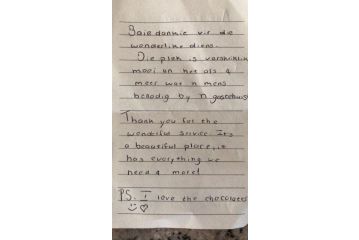 Baie dankie vir die
wonderlike diens.
Die plek is verskriklik
mooi en het als &
meer wat 'n mens
benodig by 'n gastehuis
Thank you for the
wonderful service It's
a beautiful place, it
has everything we
need & more!
PS. I love the chocolates